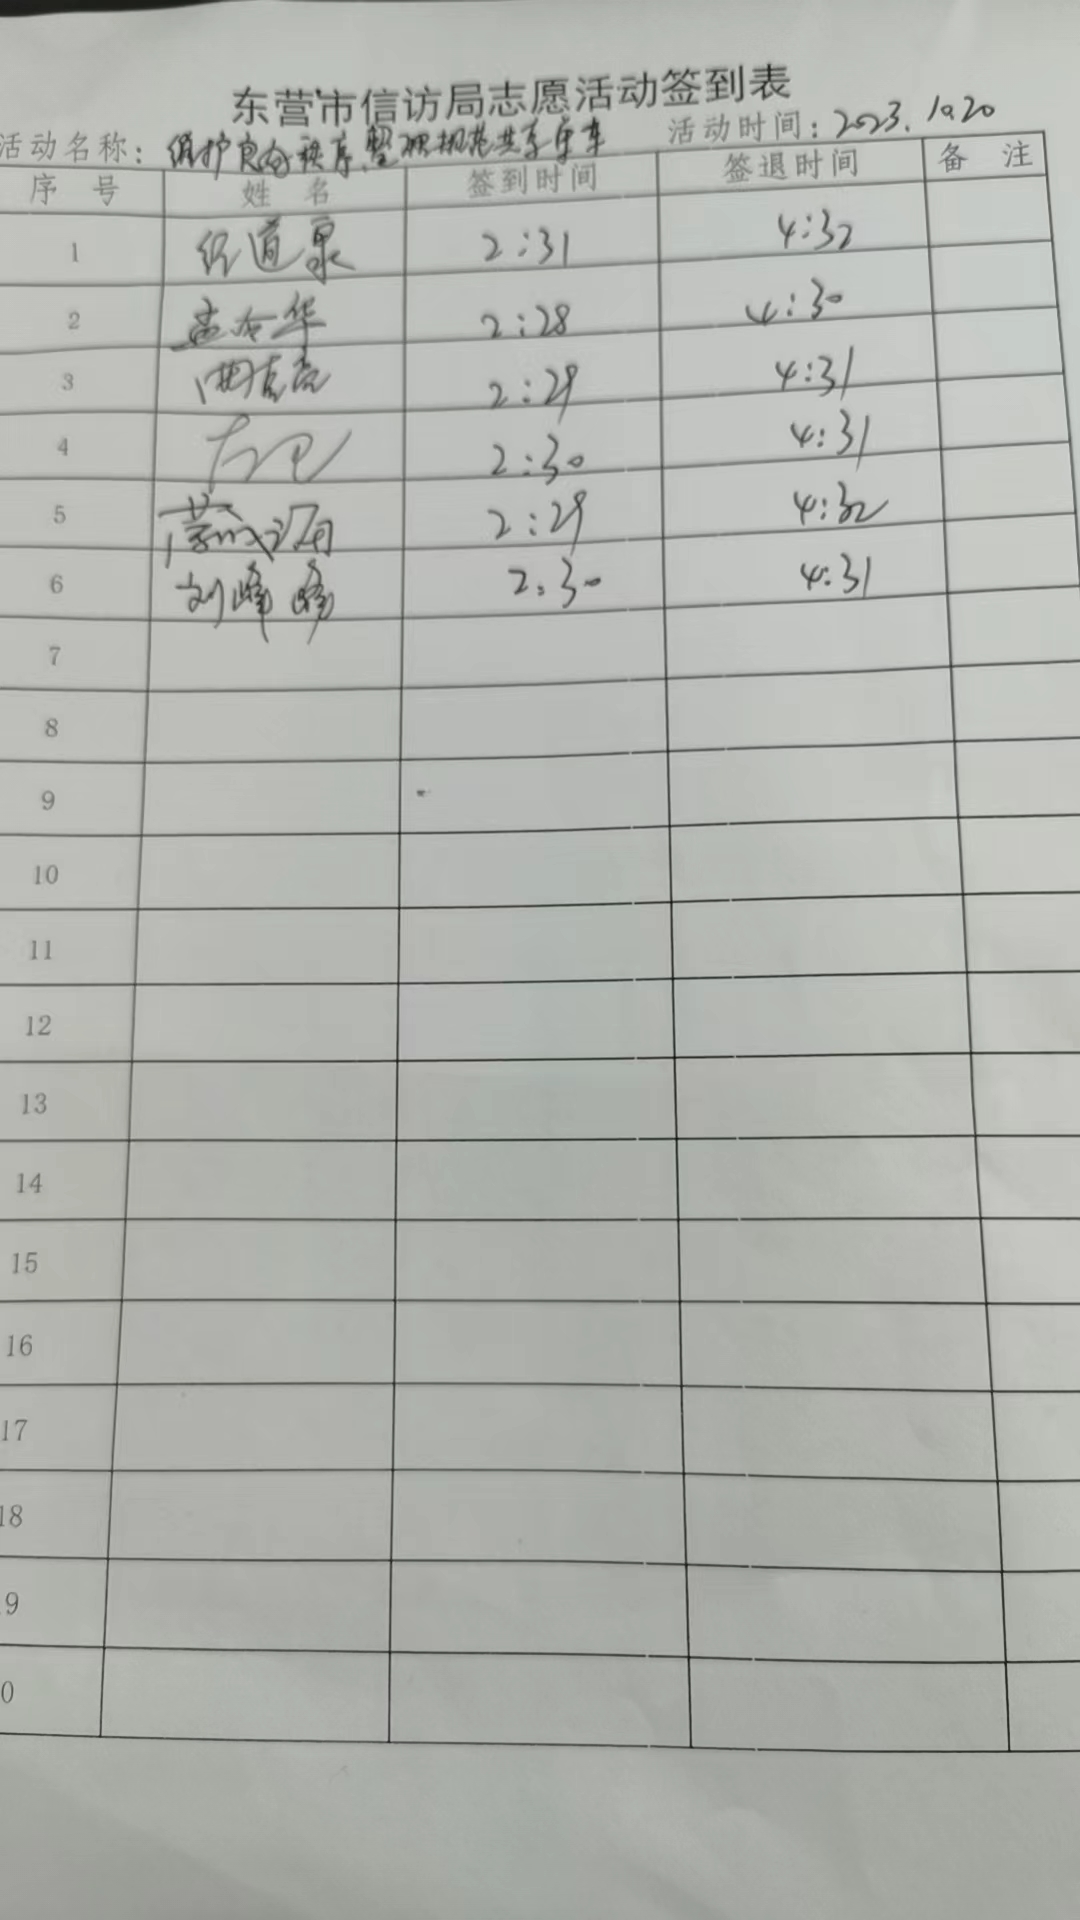 东营市信访局志愿活动签到表
活动名称：维护良好秩序,整理规范共享单车 活动时间：2023.10.20
序 号 姓 名 签到时间 签退时间 备 注
1 道泉 2:31 4:32
2 华 2:28 4:30
3 2:29 4:31
4 2:30 4:31
5 2:29 4:32
6 刘峰峰 2:30 4:31
7
8
9
10
11
12
13
14
15
16
17
18
9
0